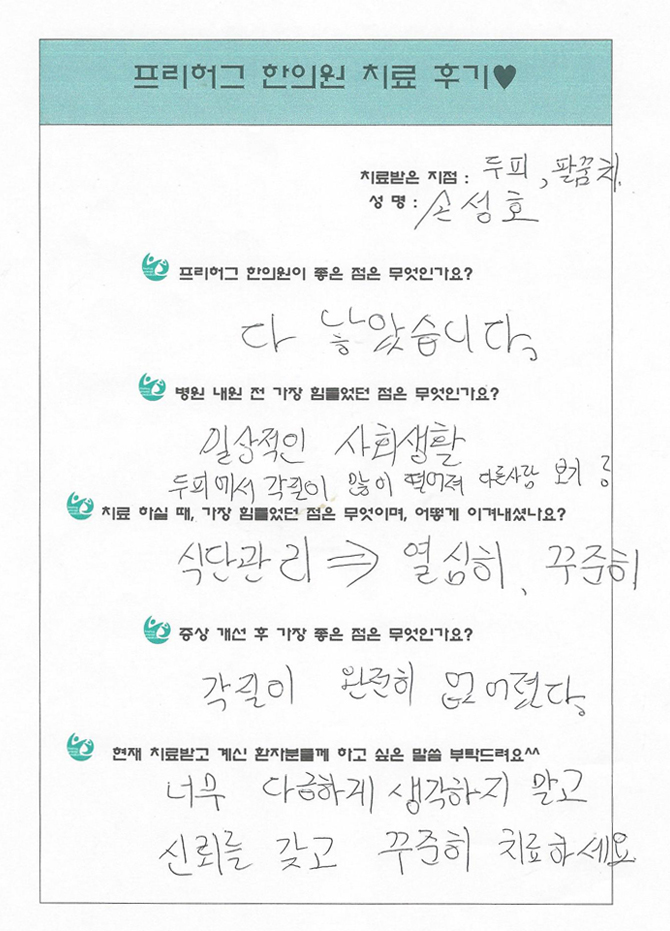 프리허그 한의원 치료 후기♥
치료받은 지점 : 두피, 팔꿈치.
성 명 : 손성호
프리허그 한의원이 좋은 점은 무엇인가요?
다 낳았습니다.
병원 내원 전 가장 힘들었던 점은 무엇인가요?
일상적인 사회생활
두피에서 각질이 많이 떨어져 다른사람 보기
치료 하실 때, 가장 힘들었던 점은 무엇이며, 어떻게 이겨내셨나요?
식단관리 ⇒ 열심히, 꾸준히
증상 개선 후 가장 좋은 점은 무엇인가요?
각질이 완전히 없어졌다.
현재 치료받고 계신 환자분들께 하고 싶은 말씀 부탁드려요^^
너무 다급하게 생각하지 말고
신뢰를 갖고 꾸준히 치료하세요.